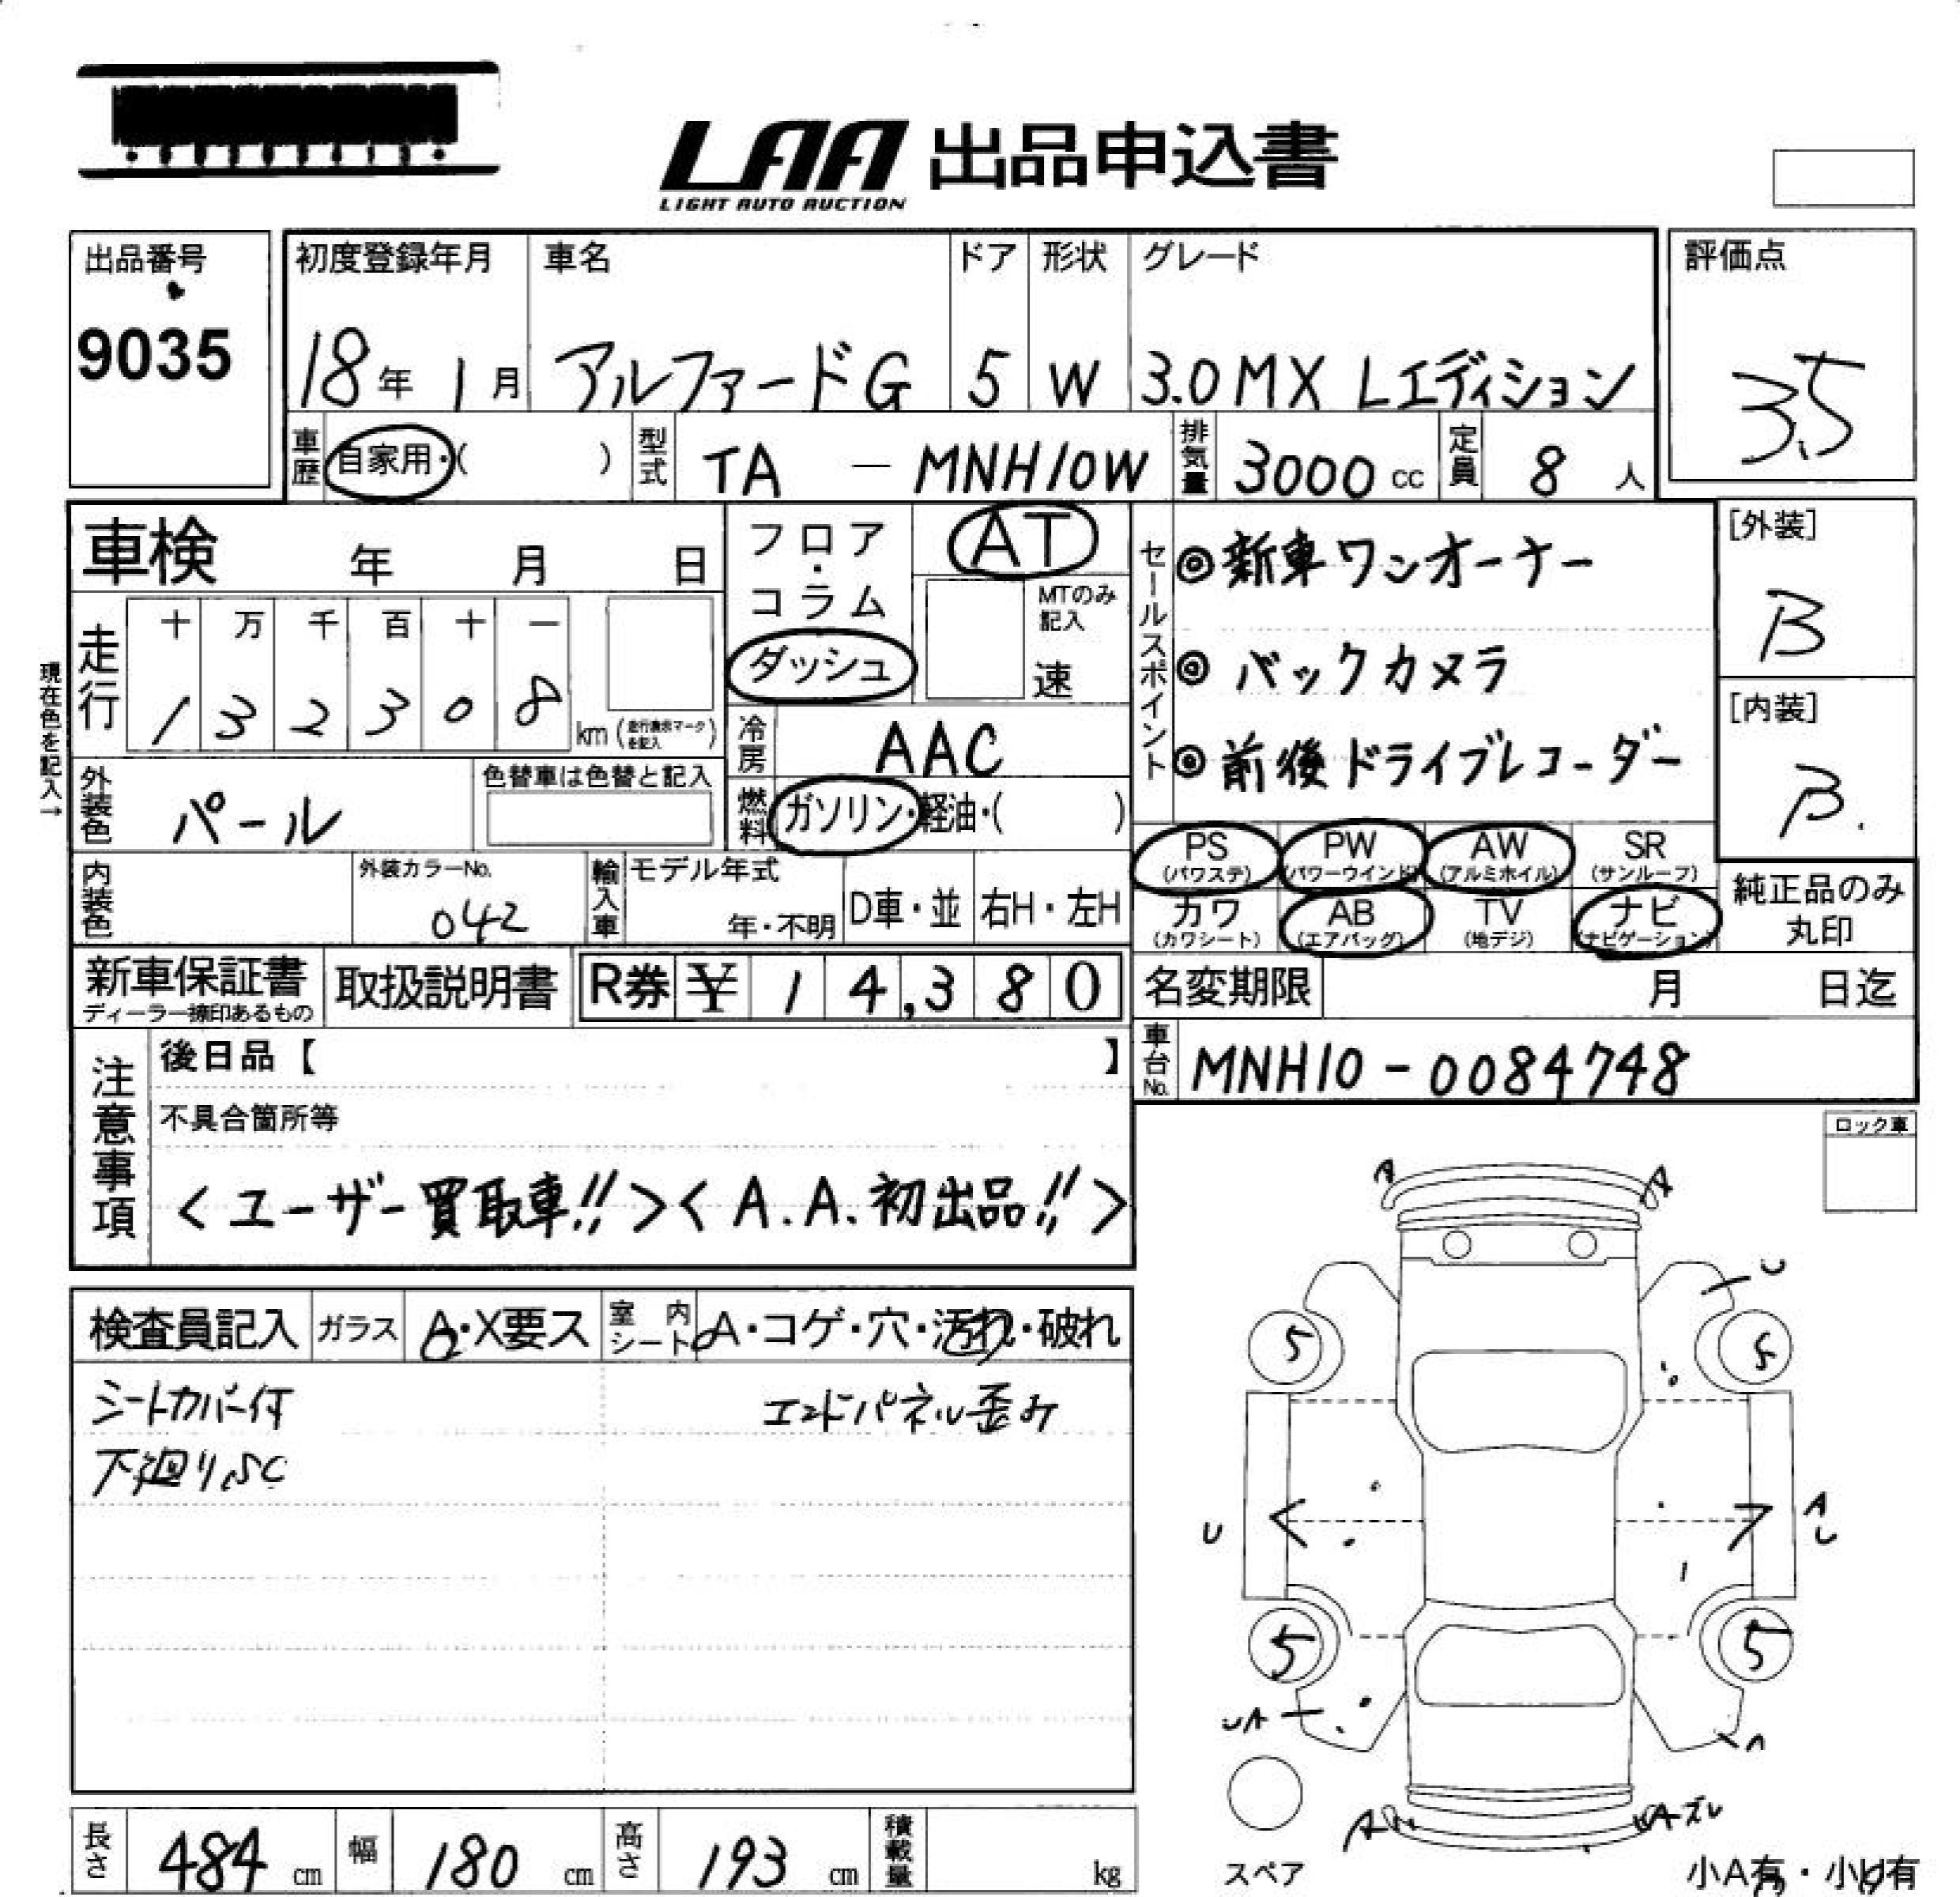 LAA 出品申込書
LIGHT AUTO AUCTION
出品番号
9035
初度登録年月
18年 1月
車名
アルファードG
ドア
5
形状
W
グレード
3.0 MX Lエディション
評価点
3.5
車歴 自家用・( )
型式 TA — MNH10W
排気量 3000 cc
定員 8 人
車検 年 月 日
フロア・コラム
ダッシュ
AT
MTのみ記入
速
セールスポイント
◎新車ワンオーナー
◎バックカメラ
◎前後ドライブレコーダー
[外装]
B
[内装]
B.
現在色を記入→
走行
十 万 千 百 十 一
1 3 2 3 0 8 km
冷房 AAC
外装色 パール
色替車は色替と記入
燃料 ガソリン・軽油・( )
PS (パワステ)
PW (パワーウインド)
AW (アルミホイル)
SR (サンルーフ)
カワ (カワシート)
AB (エアバッグ)
TV (地デジ)
ナビ (ナビゲーション)
純正品のみ丸印
内装色
外装カラーNo.
042
輸入車
モデル年式
年・不明
D車・並
右H・左H
新車保証書
ディーラー捺印あるもの
取扱説明書
R券 ¥ 14,380
名変期限 月 日迄
車台No. MNH10-0084748
注意事項
後日品【 】
不具合箇所等
<ユーザー買取車!!><A.A.初出品!!>
ロック車
検査員記入
ガラス A・X要ス
室内シート A・コゲ・穴・汚れ・破れ
シートカバー付
エンドパネル歪み
下廻りSC
A
A
U
5
5
U
A
U
5
5
UA
A
A
Aズレ
スペア
小A有・小U有
長さ 484 cm
幅 180 cm
高さ 193 cm
積載量 kg